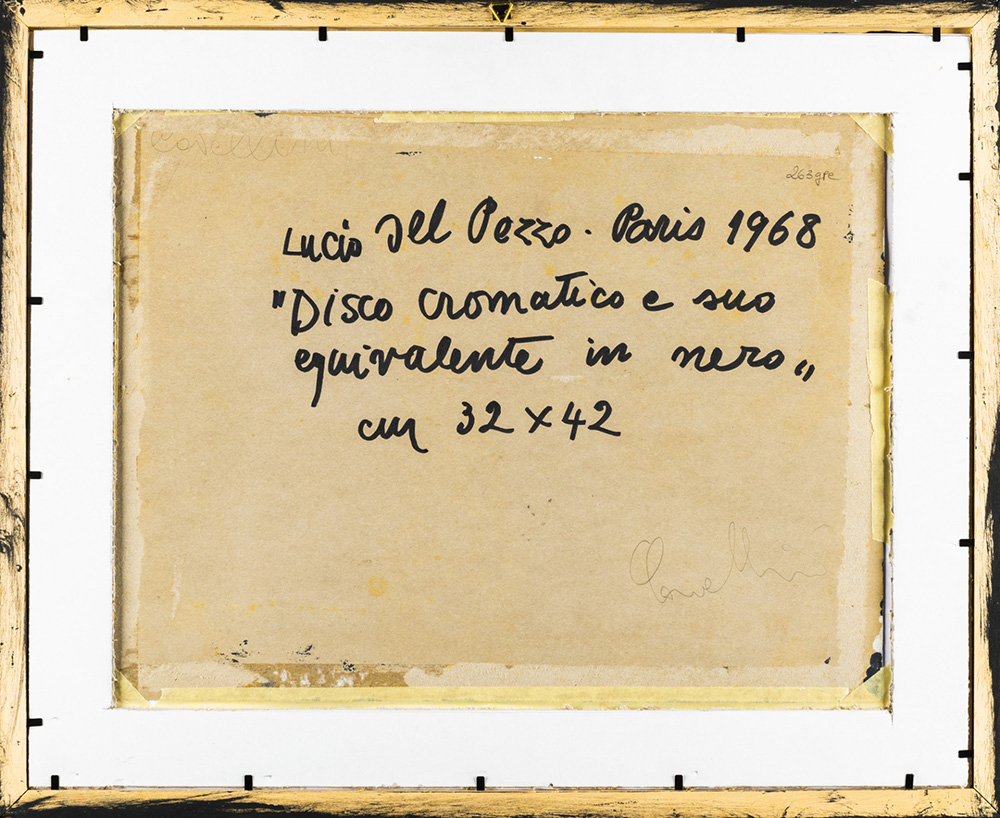 Cavellini
263gre
Lucio Del Pezzo. Paris 1968
"Disco cromatico e suo
equivalente in nero„
cm 32 x 42
Cavellini